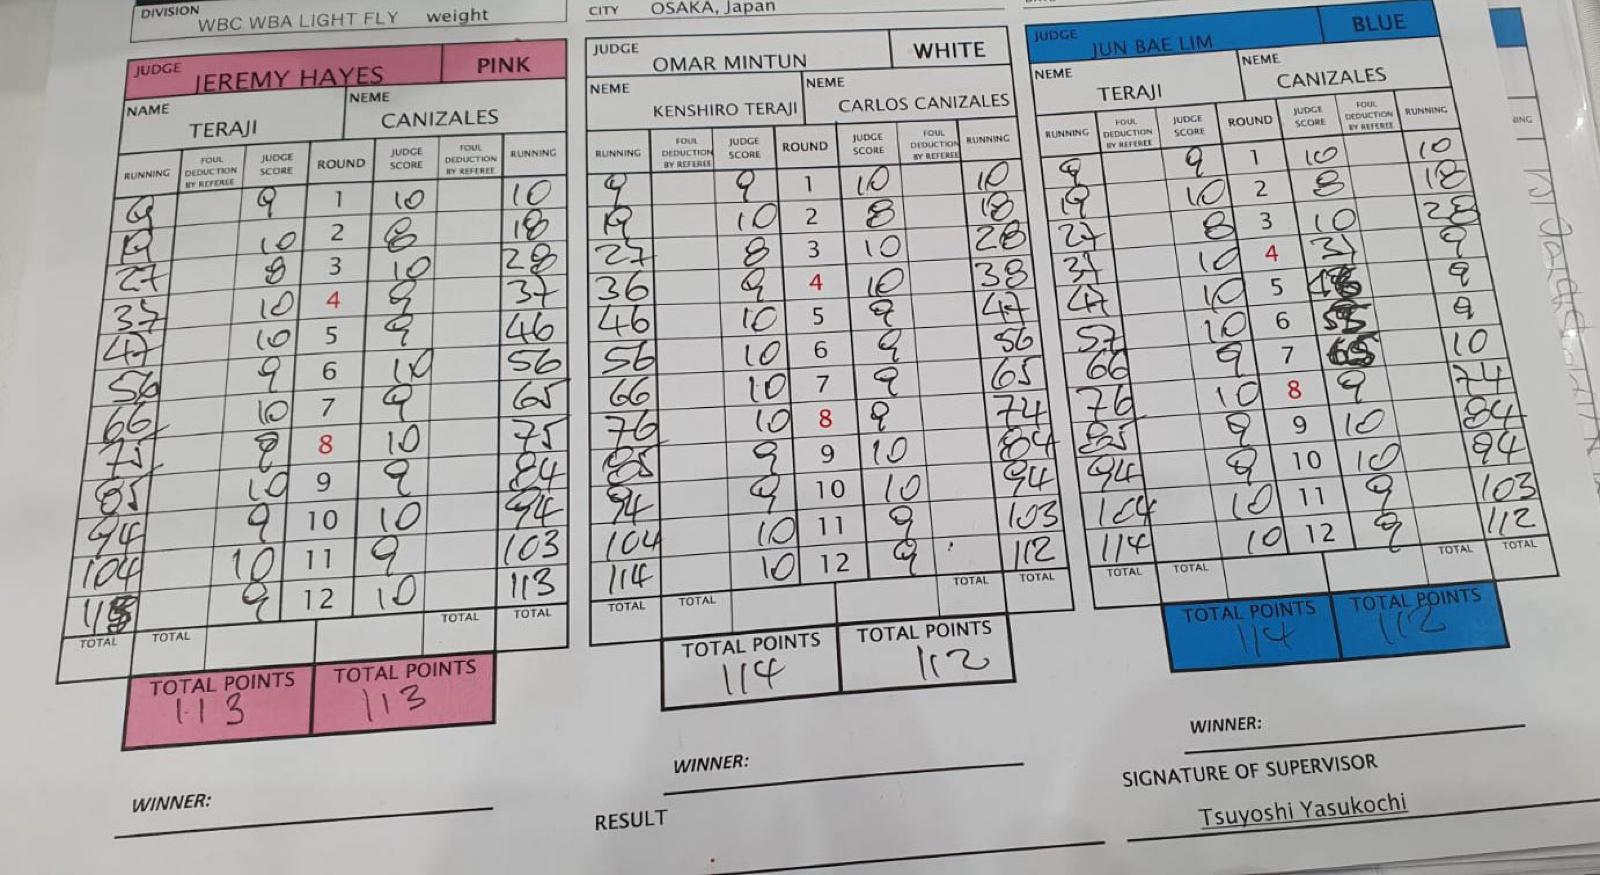 DIVISION WBC WBA LIGHT FLY weight
CITY OSAKA, Japan
JUDGE JEREMY HAYES PINK
NAME TERAJI NEME CANIZALES
RUNNING FOUL DEDUCTION BY REFEREE JUDGE SCORE ROUND JUDGE SCORE FOUL DEDUCTION BY REFEREE RUNNING
9 9 1 10 10
19 10 2 8 18
27 8 3 10 28
37 10 4 9 37
47 10 5 9 46
56 9 6 10 56
66 10 7 9 65
75 9 8 10 75
85 10 9 9 84
94 9 10 10 94
104 10 11 9 103
113 9 12 10 113
TOTAL TOTAL TOTAL TOTAL
TOTAL POINTS TOTAL POINTS
113 113
WINNER:
JUDGE OMAR MINTUN WHITE
NEME KENSHIRO TERAJI NEME CARLOS CANIZALES
RUNNING FOUL DEDUCTION BY REFEREE JUDGE SCORE ROUND JUDGE SCORE FOUL DEDUCTION BY REFEREE RUNNING
9 9 1 10 10
19 10 2 8 18
27 8 3 10 28
36 9 4 10 38
46 10 5 9 47
56 10 6 9 56
66 10 7 9 65
76 10 8 9 74
85 9 9 10 84
94 9 10 10 94
104 10 11 9 103
114 10 12 9 112
TOTAL TOTAL TOTAL TOTAL
TOTAL POINTS TOTAL POINTS
114 112
WINNER:
RESULT
JUDGE JUN BAE LIM BLUE
NEME TERAJI NEME CANIZALES
RUNNING FOUL DEDUCTION BY REFEREE JUDGE SCORE ROUND JUDGE SCORE FOUL DEDUCTION BY REFEREE RUNNING
9 9 1 10 10
19 10 2 8 18
27 8 3 10 28
37 10 4 37 9
47 10 5 9
57 10 6 9
66 9 7 10
76 10 8 9 74
85 9 9 10 84
94 9 10 10 94
104 10 11 9 103
114 10 12 9 112
TOTAL TOTAL TOTAL TOTAL
TOTAL POINTS TOTAL POINTS
114 112
WINNER:
SIGNATURE OF SUPERVISOR
Tsuyoshi Yasukochi